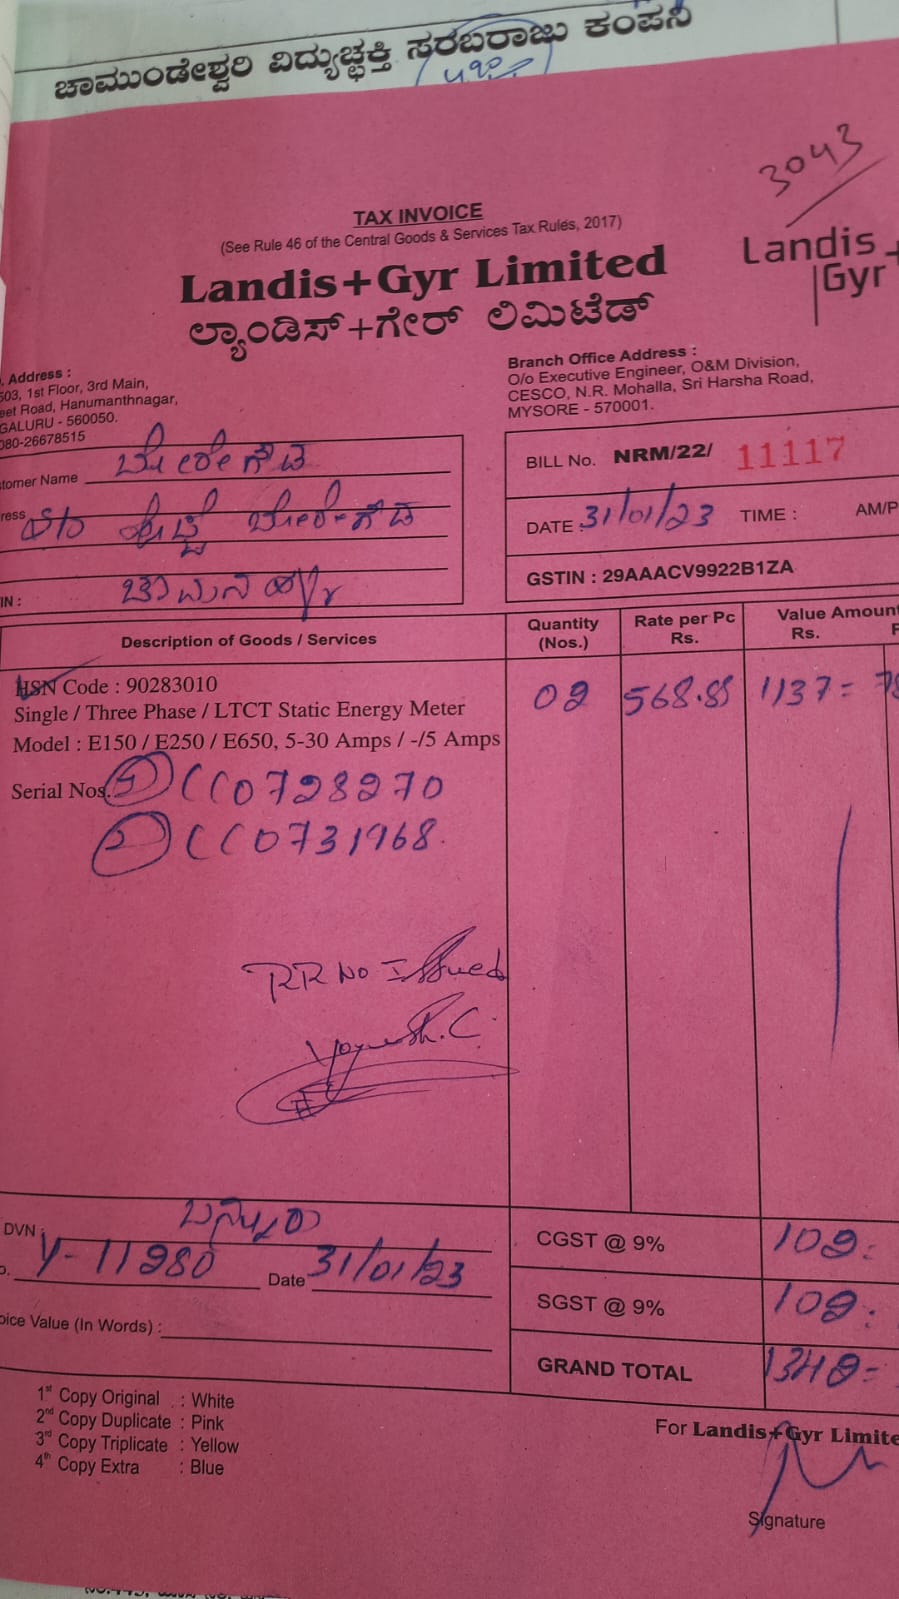 ಚಾಮುಂಡೇಶ್ವರಿ ವಿದ್ಯುಚ್ಛಕ್ತಿ ಸರಬರಾಜು ಕಂಪನಿ
3043
TAX INVOICE
(See Rule 46 of the Central Goods & Services Tax Rules, 2017)
Landis+Gyr Limited
Landis+
Gyr
ಲ್ಯಾಂಡಿಸ್+ಗೇರ್ ಲಿಮಿಟೆಡ್
Address :
503, 1st Floor, 3rd Main,
Road, Hanumanthnagar,
GALURU - 560050.
080-26678515
Branch Office Address :
O/o Executive Engineer, O&M Division,
CESCO, N.R. Mohalla, Sri Harsha Road,
MYSORE - 570001.
tomer Name ಬೋರೇಗೌಡ
ress ಬೋರೇಗೌಡ
IN :
BILL No. NRM/22/ 11117
DATE : 31/01/23 TIME : AM/P
GSTIN : 29AAACV9922B1ZA
Description of Goods / Services
Quantity (Nos.)
Rate per Pc Rs.
Value Amoun Rs.
HSN Code : 90283010
Single / Three Phase / LTCT Static Energy Meter
Model : E150 / E250 / E650, 5-30 Amps / -/5 Amps
02 568.85 1137=
Serial Nos. 1 CC0728270
2 CC0731968.
RR No Issued
Yogesh.C.
DVN : ಬನ್ನೂರು
Y-11280 Date 31/01/23
oice Value (In Words) :
CGST @ 9% 102=
SGST @ 9% 102=
GRAND TOTAL 1342=
1st Copy Original : White
2nd Copy Duplicate : Pink
3rd Copy Triplicate : Yellow
4th Copy Extra : Blue
For Landis+Gyr Limite
Signature